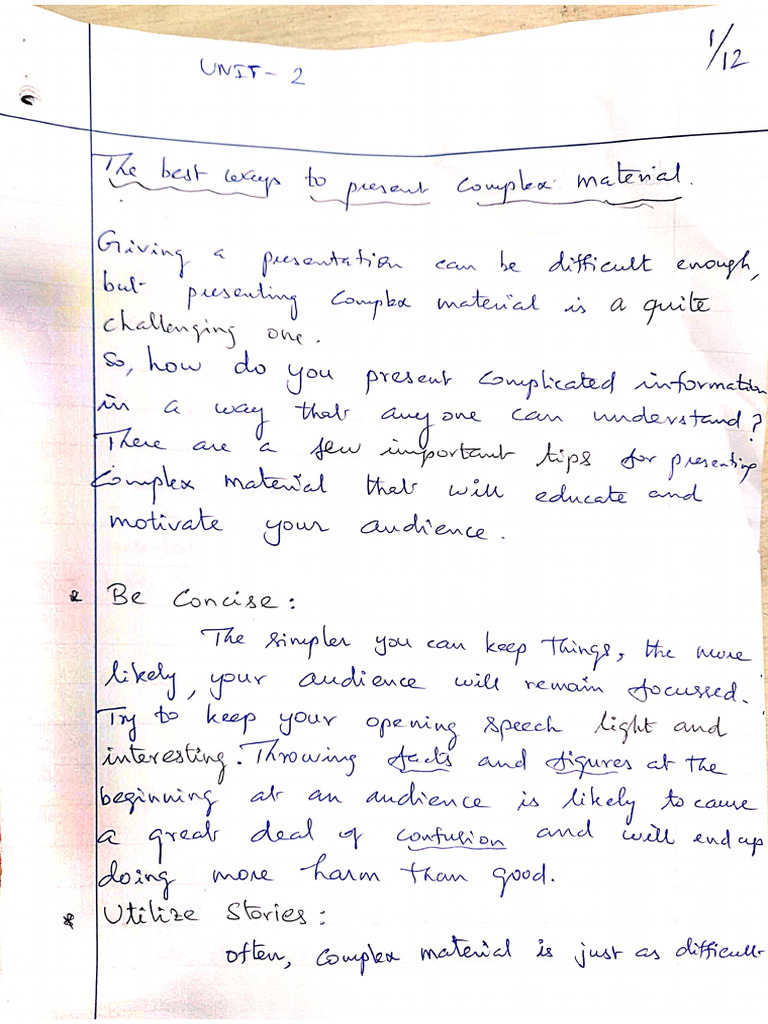 1/12
UNIT - 2
The best ways to present complex material.
Giving a presentation can be difficult enough,
but presenting complex material is a quite
challenging one.
So, how do you present complicated information
in a way that anyone can understand?
There are a few important tips for presenting
complex material that will educate and
motivate your audience.
* Be Concise:
The simpler you can keep things, the more
likely, your audience will remain focussed.
Try to keep your opening speech light and
interesting. Throwing facts and figures at the
beginning at an audience is likely to cause
a great deal of confusion and will end up
doing more harm than good.
* Utilize Stories:
often, complex material is just as difficult